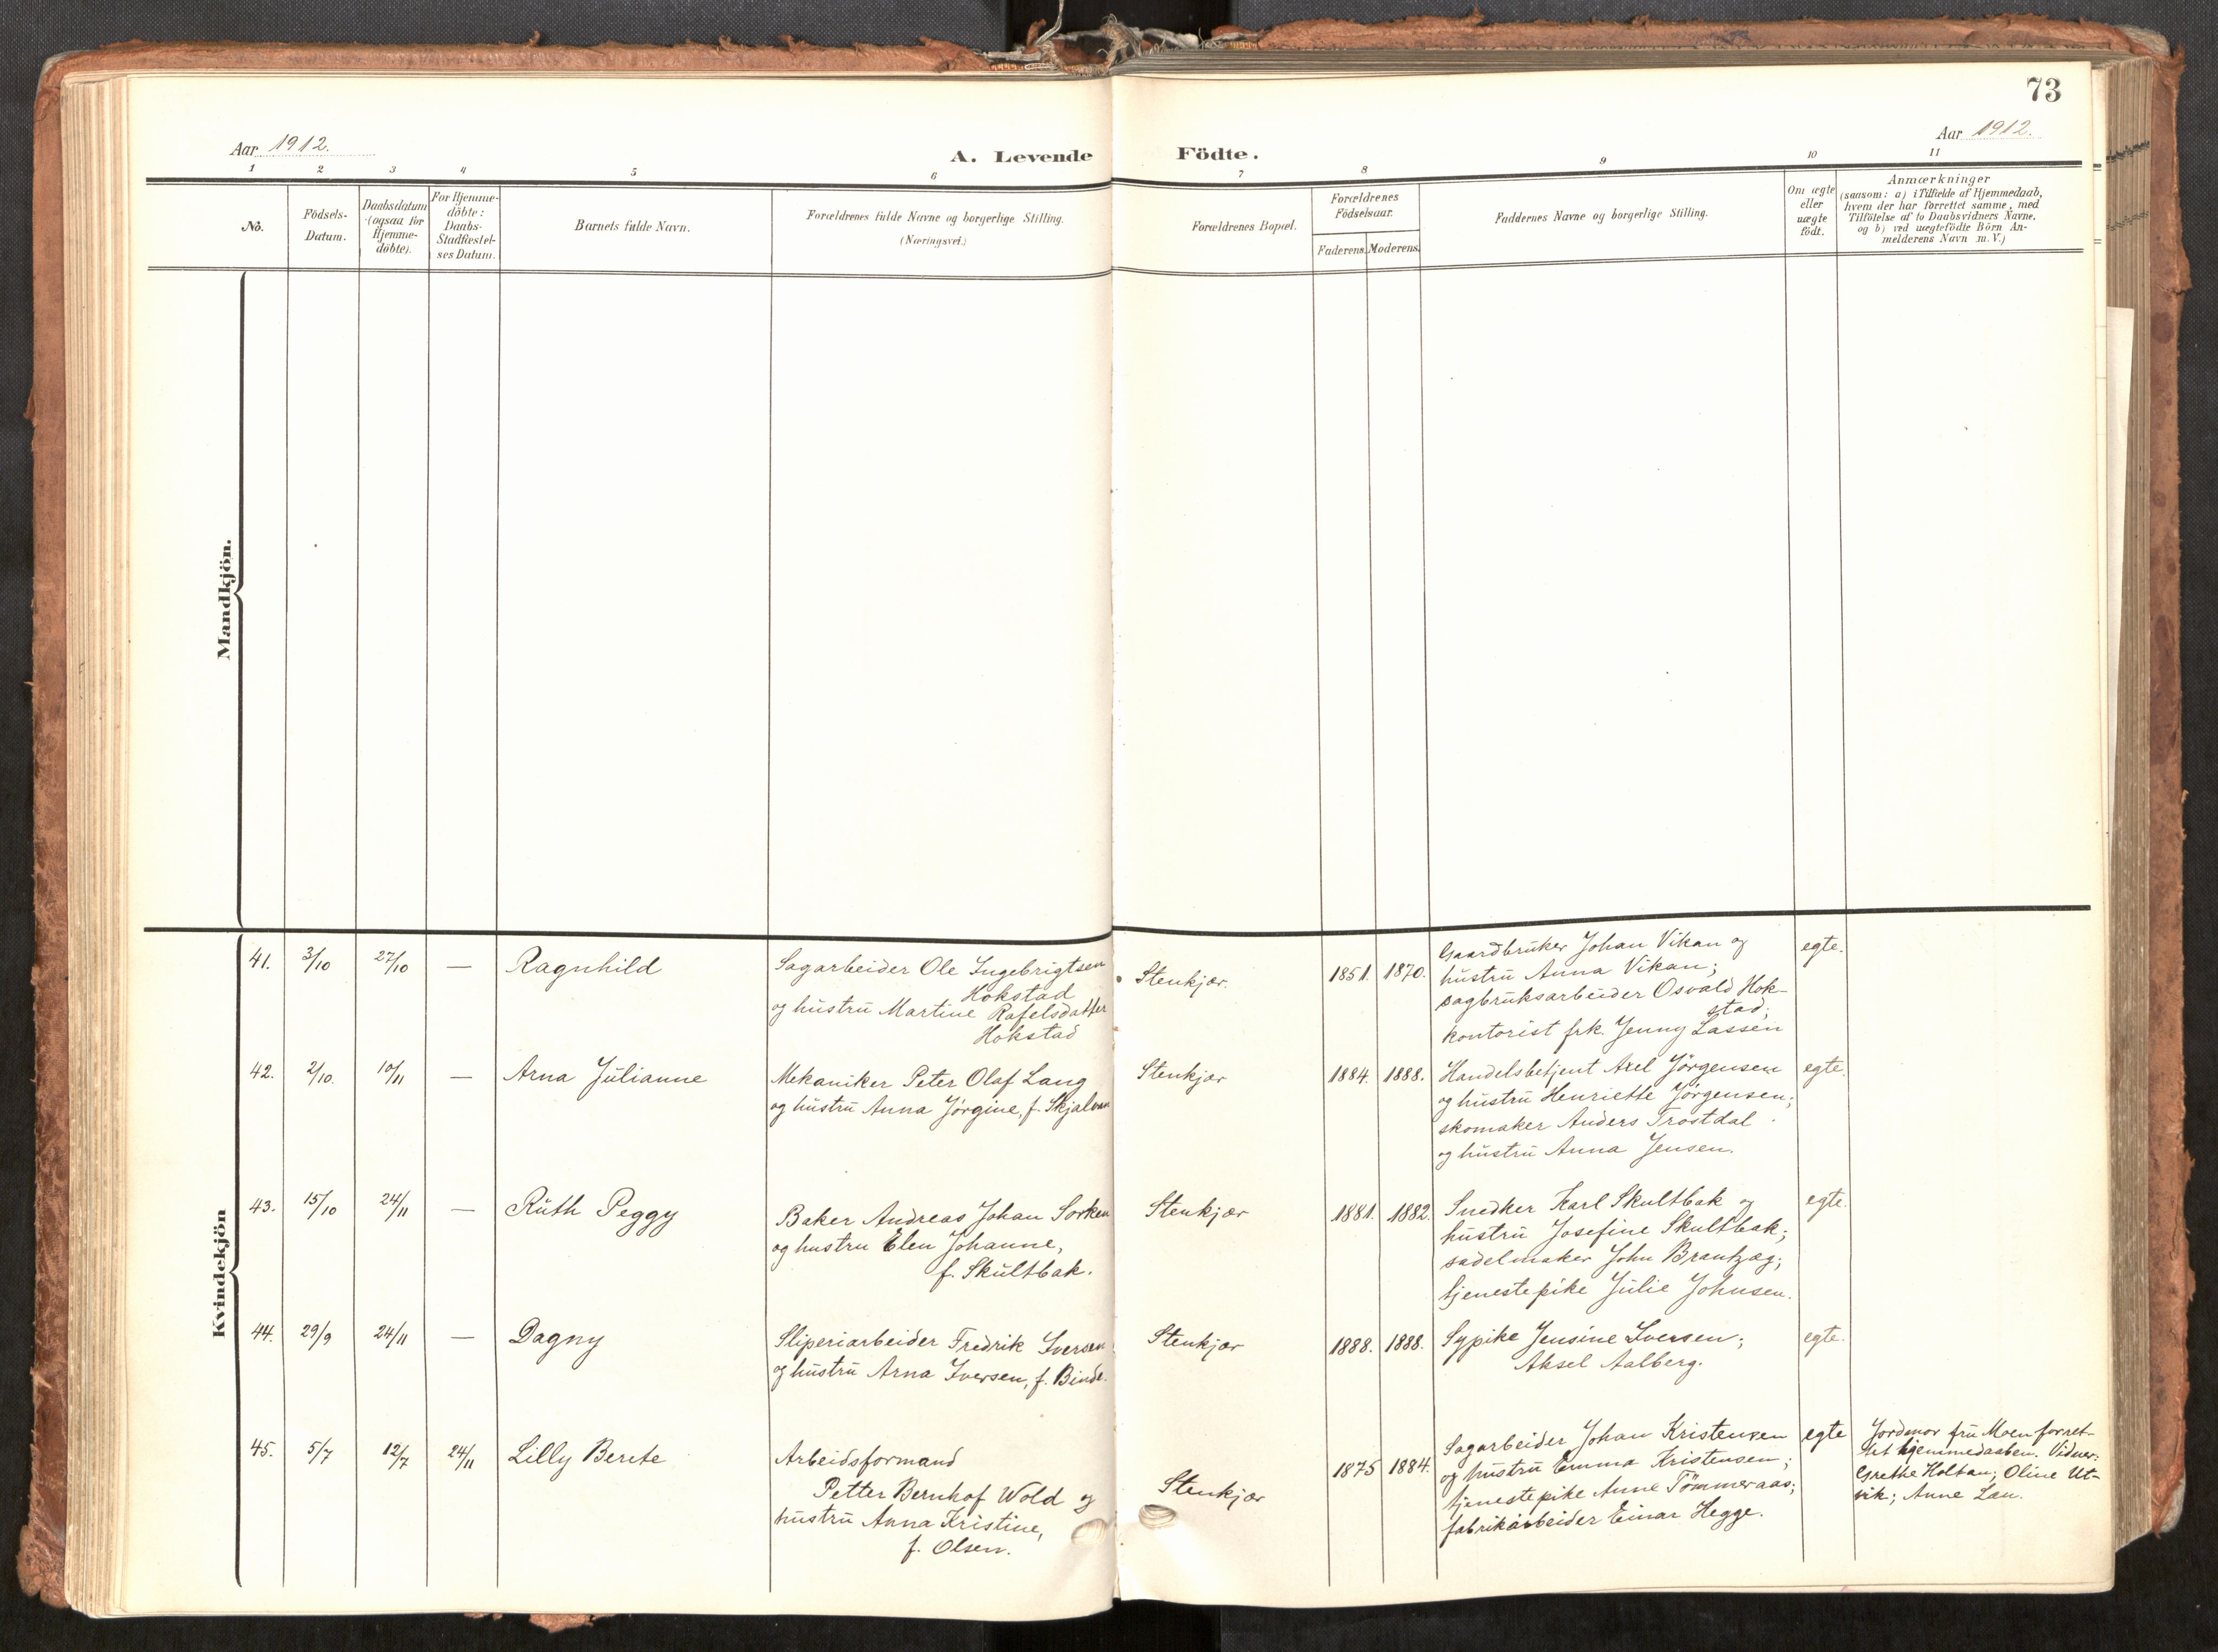 73
Aar 1912.
Aar 1912.
A. Levende Födte.
1 2 3 4 5 6 7 8 9 10 11
No.
Födsels-
Datum.
Daabsdatum
(ogsaa for
Hjemme-
döbte).
For Hjemme-
döbte:
Daabs-
Stadfæstel-
ses Datum.
Barnets fulde Navn.
Forældrenes fulde Navne og borgerlige Stilling.
(Næringsvei.)
Forældrenes Bopæl.
Forældrenes
Födselsaar.
Faderens. Moderens.
Faddernes Navne og borgerlige Stilling.
Om ægte
eller
uægte
födt.
Anmærkninger
(saasom: a) i Tilfælde af Hjemmedaab,
hvem der har forrettet samme, med
Tilföielse af to Daabsvidners Navne.
og b) ved uægtefödte Börn An-
melderens Navn m. V.)
Mandkjön.
Kvindekjön
41. 3/10 27/10 — Ragnhild
Sagarbeider Ole Ingebrigtsen
Hokstad
og hustru Martine Rafelsdatter
Hokstad
Stenkjær. 1851. 1870.
Gaardbruker Johan Vikan og
hustru Anna Vikan;
sagbruksarbeider Osvald Hok-
stad;
kontorist frk. Jenny Lassen
egte.
42. 2/10. 10/11 — Arna Julianne
Mekaniker Peter Olaf Lang
og hustru Anna Jörgine, f. Skjalvan
Stenkjær 1884. 1888.
Handelsbetjent Axel Jörgensen
og hustru Henriette Jörgensen;
skomaker Anders Trostdal
og hustru Anna Jensen.
egte.
43. 15/10 24/11 — Ruth Peggy
Baker Andreas Johan Sorken
og hustru Elen Johanne,
f. Skultbak.
Stenkjær 1881. 1882.
Snedker Karl Skultbak og
hustru Josefine Skultbak;
sadelmaker John Brantzæg;
tjenestepike Julie Johnsen.
egte.
44. 29/9 24/11 — Dagny
Sliperiarbeider Fredrik Iversen
og hustru Arna Iversen, f. Binde.
Stenkjær 1888. 1888.
Sypike Jensine Iversen;
Aksel Aalberg.
egte.
45. 5/7 12/7 24/11 Lilly Berete
Arbeidsformand
Petter Bernhof Wold og
hustru Anna Kristine,
f. Olsen.
Stenkjær 1875 1884.
Sagarbeider Johan Kristensen
og hustru Emma Kristensen;
tjenestepike Anne Tömmeraas;
fabrikarbeider Einar Hegge.
egte
Jordmor fru Moen forret-
tet hjemmedaaben. Vidner:
Grethe Holtan; Oline Ut-
vik; Anne Lau.